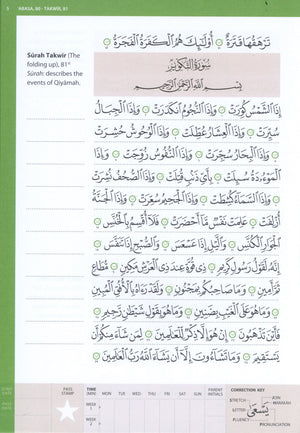 5 'ABASA, 80 - TAKWĪR, 81
تَرْهَقُهَا قَتَرَةٌ ۝ أُولَٰئِكَ هُمُ الْكَفَرَةُ الْفَجَرَةُ ۝
Sūrah Takwīr (The
folding up), 81st
Sūrah: describes the
events of Qiyāmah.
سُورَةُ التَّكْوِيرِ
بِسْمِ اللَّهِ الرَّحْمَٰنِ الرَّحِيمِ
إِذَا الشَّمْسُ كُوِّرَتْ ۝ وَإِذَا النُّجُومُ انْكَدَرَتْ ۝ وَإِذَا الْجِبَالُ
سُيِّرَتْ ۝ وَإِذَا الْعِشَارُ عُطِّلَتْ ۝ وَإِذَا الْوُحُوشُ حُشِرَتْ
۝ وَإِذَا الْبِحَارُ سُجِّرَتْ ۝ وَإِذَا النُّفُوسُ زُوِّجَتْ ۝ وَإِذَا
الْمَوْءُودَةُ سُئِلَتْ ۝ بِأَيِّ ذَنْبٍ قُتِلَتْ ۝ وَإِذَا الصُّحُفُ نُشِرَتْ
۝ وَإِذَا السَّمَاءُ كُشِطَتْ ۝ وَإِذَا الْجَحِيمُ سُعِّرَتْ ۝ وَإِذَا الْجَنَّةُ
أُزْلِفَتْ ۝ عَلِمَتْ نَفْسٌ مَا أَحْضَرَتْ ۝ فَلَا أُقْسِمُ بِالْخُنَّسِ
۝ الْجَوَارِ الْكُنَّسِ ۝ وَاللَّيْلِ إِذَا عَسْعَسَ ۝ وَالصُّبْحِ إِذَا تَنَفَّسَ
۝ إِنَّهُ لَقَوْلُ رَسُولٍ كَرِيمٍ ۝ ذِي قُوَّةٍ عِنْدَ ذِي الْعَرْشِ مَكِينٍ ۝ مُطَاعٍ
ثَمَّ أَمِينٍ ۝ وَمَا صَاحِبُكُمْ بِمَجْنُونٍ ۝ وَلَقَدْ رَآهُ بِالْأُفُقِ الْمُبِينِ
۝ وَمَا هُوَ عَلَى الْغَيْبِ بِضَنِينٍ ۝ وَمَا هُوَ بِقَوْلِ شَيْطَانٍ رَجِيمٍ ۝
فَأَيْنَ تَذْهَبُونَ ۝ إِنْ هُوَ إِلَّا ذِكْرٌ لِلْعَالَمِينَ ۝ لِمَنْ شَاءَ مِنْكُمْ أَنْ
يَسْتَقِيمَ ۝ وَمَا تَشَاءُونَ إِلَّا أَنْ يَشَاءَ اللَّهُ رَبُّ الْعَالَمِينَ ۝
START DATE
PASS DATE
PASS STAMP
TIME (MIN) MON TUE WED THU FRI SAT SUN PARENT INITIALS
WEEK 1
WEEK 2
CORRECTION KEY
STRETCH
JOIN
HARAKAH
LETTER
يَسْعَىٰ
FLUENCY
PRONUNCIATION